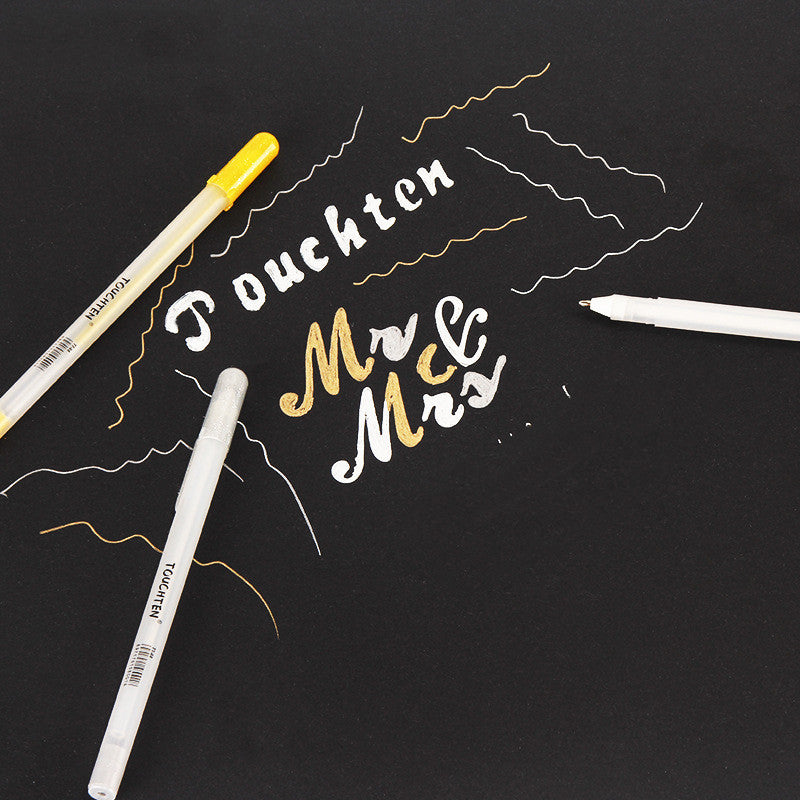 Touchten
Mr &
Mrs
TOUCHTEN®
TOUCHTEN®